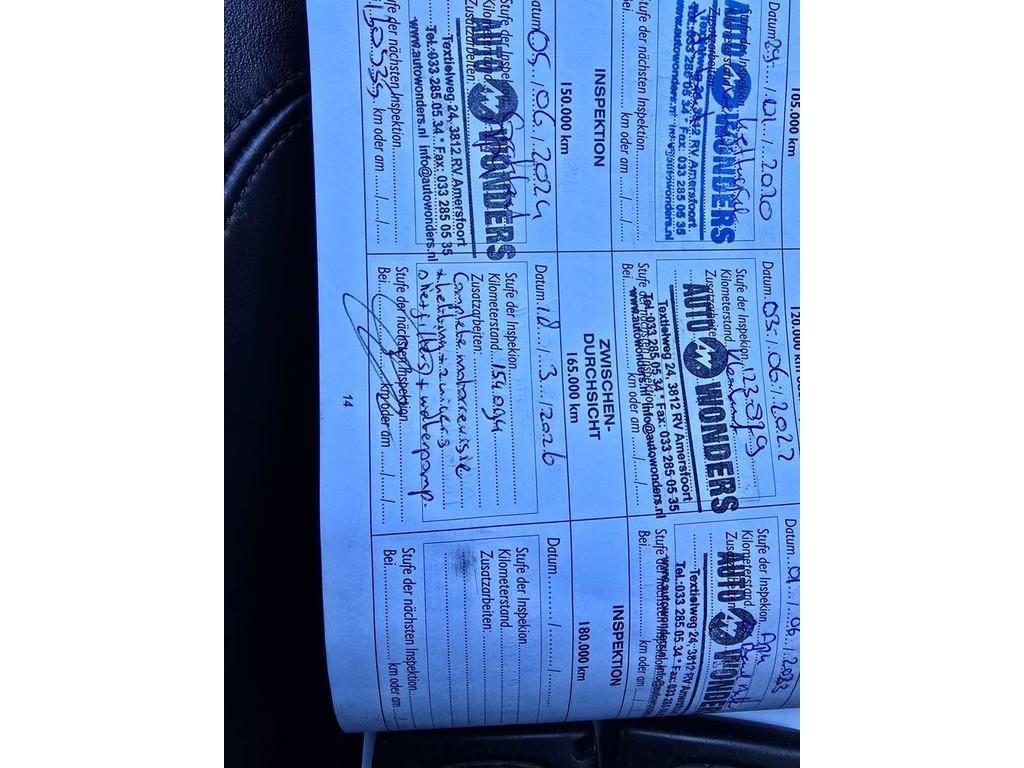 105.000 km
Datum 29 / 01 / 2020
AUTO WONDERS
Textielweg 24, 3812 RV Amersfoort
Tel.: 033 285 05 34 * Fax: 033 285 05 35
www.autowonders.nl
120.000 km
Datum 03 / 06 / 2022
Stufe der Inspektion
Kilometerstand 123.879
Zusatzarbeiten
AUTO WONDERS
Textielweg 24, 3812 RV Amersfoort
Tel.: 033 285 05 34 * Fax: 033 285 05 35
www.autowonders.nl info@autowonders.nl
Stufe der nächsten
Bei km oder am / /
Datum 01 / 06 / 2023
Stufe der Inspektion
Kilometerstand
AUTO WONDERS
Textielweg 24, 3812 RV Amersfoort
Tel.: 033 285 05 34 * Fax: 033 285 05 35
Stufe der nächsten Inspektion
Bei km oder am /
INSPEKTION
150.000 km
Datum 05 / 06 / 2024
Stufe der Inspektion
Zusatzarbeiten:
AUTO WONDERS
Textielweg 24, 3812 RV Amersfoort
Tel.: 033 285 05 34 * Fax: 033 285 05 35
www.autowonders.nl info@autowonders.nl
Stufe der nächsten Inspektion
km oder am / /
ZWISCHEN-
DURCHSICHT
165.000 km
Datum 18 / 3 / 2026
Stufe der Inspektion
Kilometerstand 154.094
Zusatzarbeiten:
Complete motorrevisie
+ waterpomp.
Stufe der nächsten Inspektion
Bei km oder am / /
INSPEKTION
180.000 km
Datum / /
Stufe der Inspektion
Kilometerstand
Zusatzarbeiten:
Stufe der nächsten Inspektion
Bei km oder am /
14